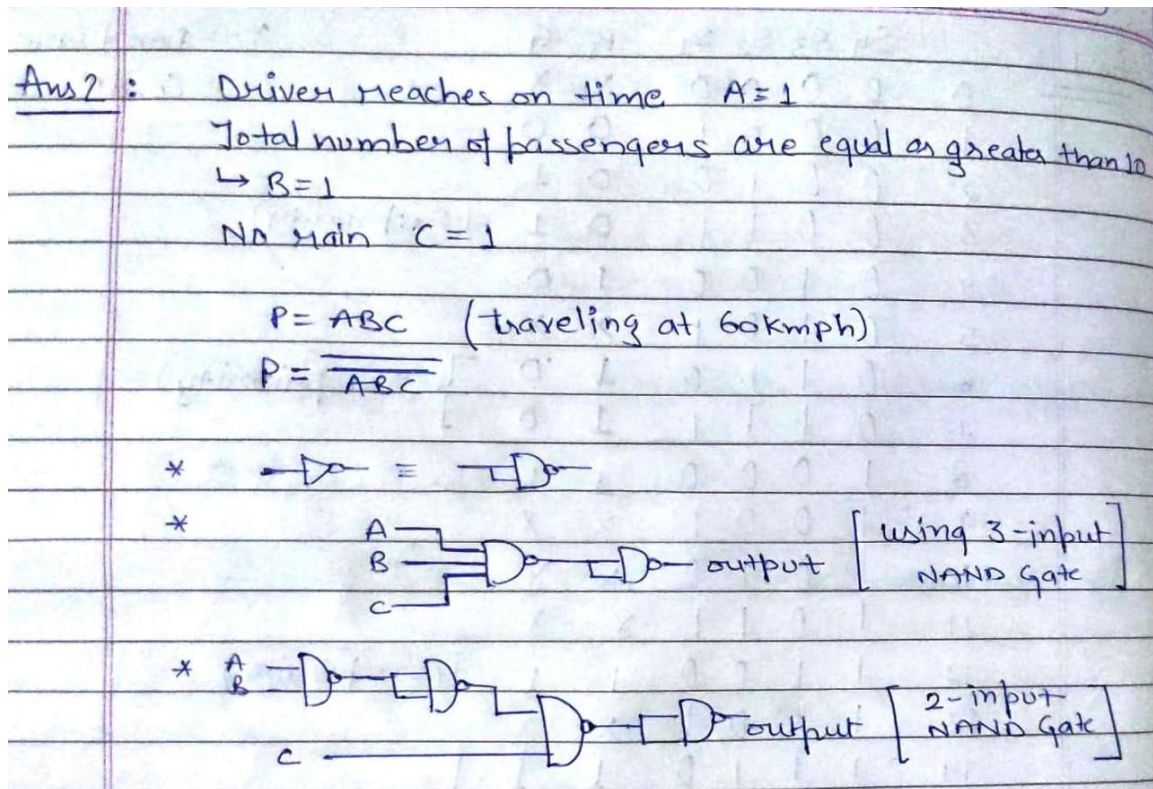 Ans 2 : Driver reaches on time A = 1
Total number of passengers are equal or greater than 10
↳ B = 1
No rain C = 1
P = ABC (traveling at 60kmph)
P = \overline{\overline{ABC}}
* ≡
*
A
B
C
output [using 3-input
NAND Gate]
* A
B
C
output [2-input
NAND Gate]